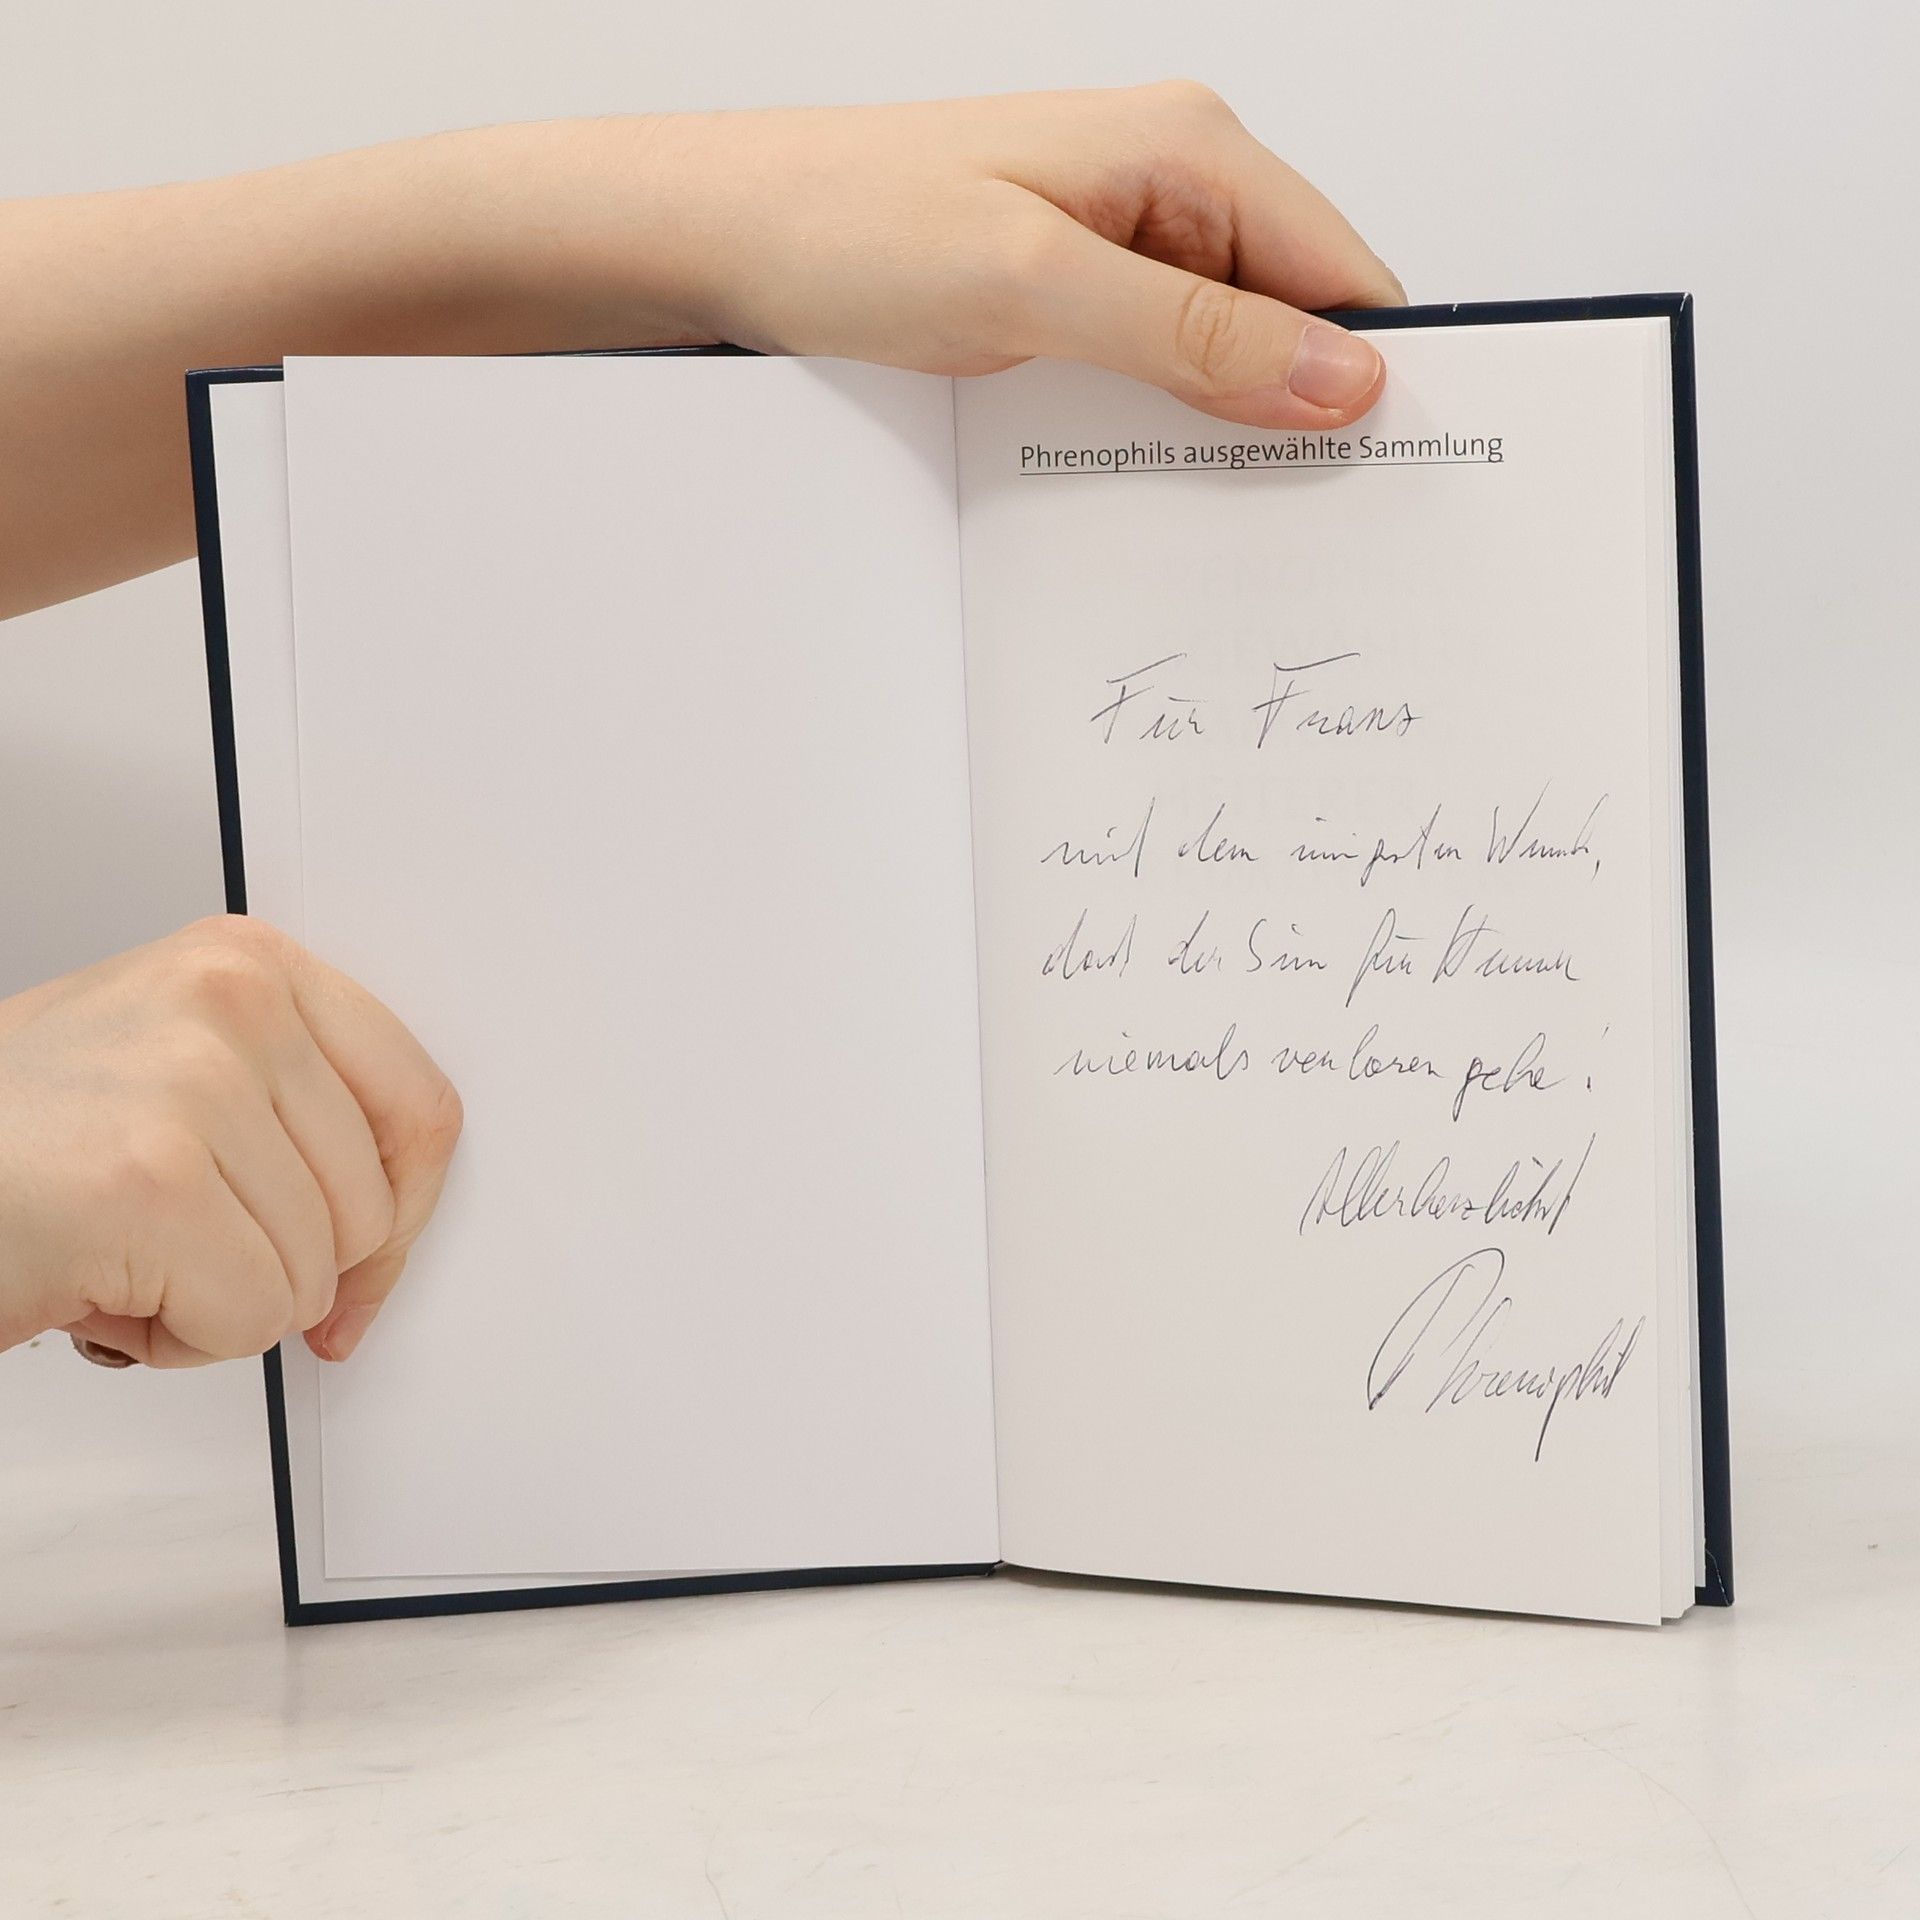 Phrenophils ausgewählte Sammlung
Für Franz
mit dem innigsten Wunsch,
daß der Sinn für Humor
niemals verloren gehe!
Allerherzlichst
Phrenophil